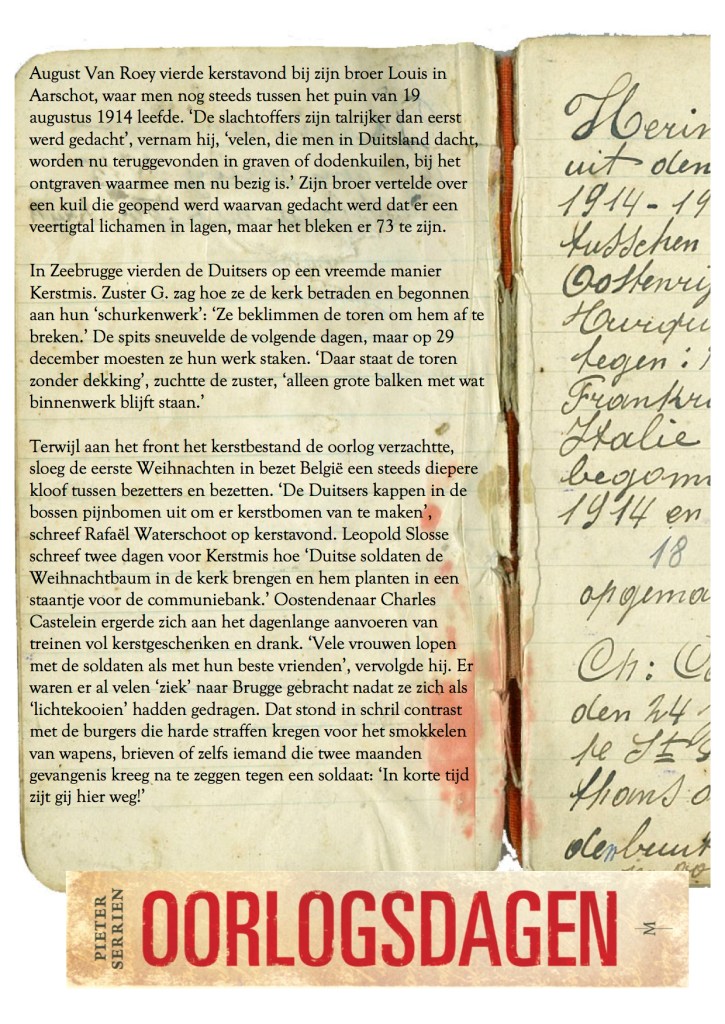 August Van Roey vierde kerstavond bij zijn broer Louis in
Aarschot, waar men nog steeds tussen het puin van 19
augustus 1914 leefde. ‘De slachtoffers zijn talrijker dan eerst
werd gedacht’, vernam hij, ‘velen, die men in Duitsland dacht,
worden nu teruggevonden in graven of dodenkuilen, bij het
ontgraven waarmee men nu bezig is.’ Zijn broer vertelde over
een kuil die geopend werd waarvan gedacht werd dat er een
veertigtal lichamen in lagen, maar het bleken er 73 te zijn.
In Zeebrugge vierden de Duitsers op een vreemde manier
Kerstmis. Zuster G. zag hoe ze de kerk betraden en begonnen
aan hun ‘schurkenwerk’: ‘Ze beklimmen de toren om hem af te
breken.’ De spits sneuvelde de volgende dagen, maar op 29
december moesten ze hun werk staken. ‘Daar staat de toren
zonder dekking’, zuchtte de zuster, ‘alleen grote balken met wat
binnenwerk blijft staan.’
Terwijl aan het front het kerstbestand de oorlog verzachtte,
sloeg de eerste Weihnachten in bezet België een steeds diepere
kloof tussen bezetters en bezetten. ‘De Duitsers kappen in de
bossen pijnbomen uit om er kerstbomen van te maken’,
schreef Rafaël Waterschoot op kerstavond. Leopold Slosse
schreef twee dagen voor Kerstmis hoe ‘Duitse soldaten de
Weihnachtbaum in de kerk brengen en hem planten in een
staantje voor de communiebank.’ Oostendenaar Charles
Castelein ergerde zich aan het dagenlange aanvoeren van
treinen vol kerstgeschenken en drank. ‘Vele vrouwen lopen
met de soldaten als met hun beste vrienden’, vervolgde hij. Er
waren er al velen ‘ziek’ naar Brugge gebracht nadat ze zich als
‘lichtekooien’ hadden gedragen. Dat stond in schril contrast
met de burgers die harde straffen kregen voor het smokkelen
van wapens, brieven of zelfs iemand die twee maanden
gevangenis kreeg na te zeggen tegen een soldaat: ‘In korte tijd
zijt gij hier weg!’
Herin
uit den
1914-19
tusschen
Oostenrij
tegen:
Frankri
Italie
begonn
1914 en
18
opgema
Ch:
den 24
thans
PIETER
SERRIEN
OORLOGSDAGEN
M